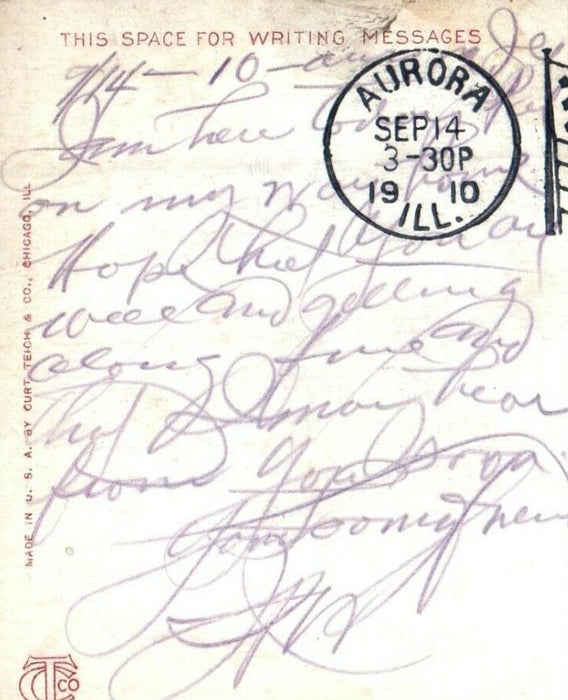 THIS SPACE FOR WRITING MESSAGES
9/14-10-
AURORA
SEP 14
3-30P
19 10
ILL.
am here
on my way home
Hope that you are
well and getting
along fine and
that I may hear
from you soon.
MADE IN U. S. A. BY CURT TEICH & CO., CHICAGO, ILL
CTCO